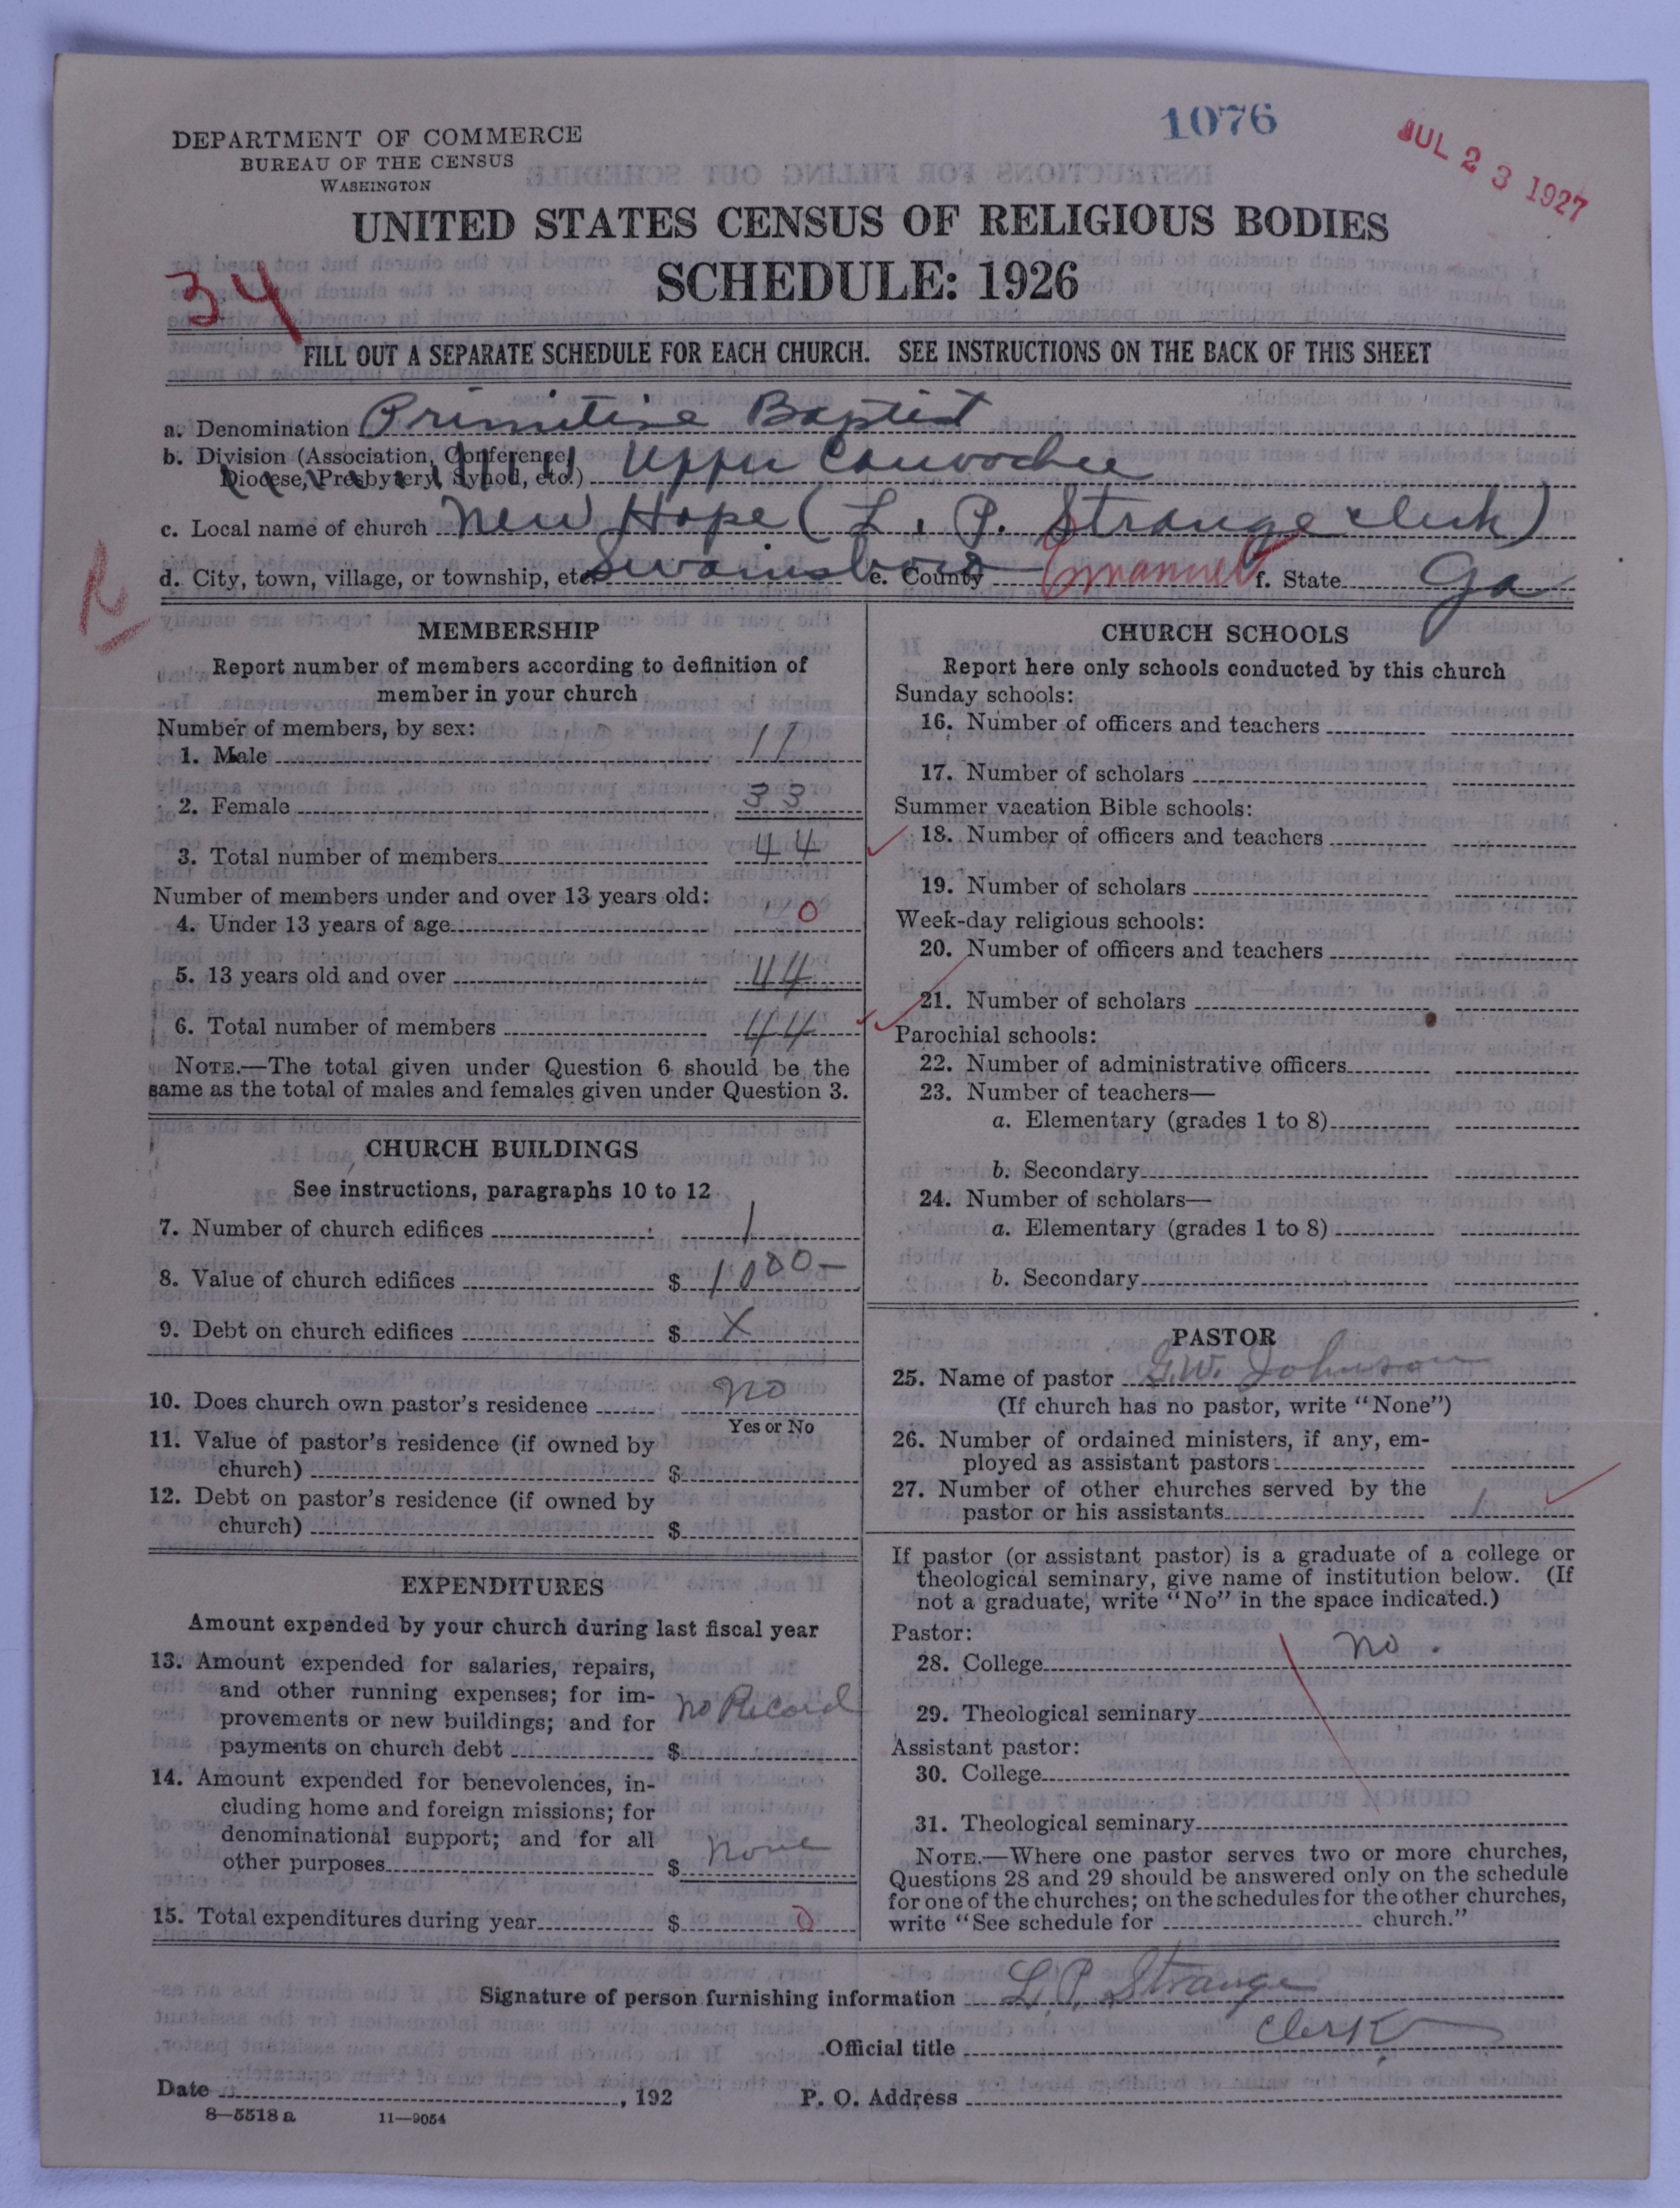 1076
JUL 23 1927
DEPARTMENT OF COMMERCE
BUREAU OF THE CENSUS
WASHINGTON
UNITED STATES CENSUS OF RELIGIOUS BODIES
SCHEDULE: 1926
34
FILL OUT A SEPARATE SCHEDULE FOR EACH CHURCH. SEE INSTRUCTIONS ON THE BACK OF THIS SHEET
a. Denomination Primitive Baptist
b. Division (Association, Conference, Diocese, Presbytery, Synod, etc.) Upper Canoochee
c. Local name of church New Hope (L. P. Strange clerk)
d. City, town, village, or township, etc. Swainsboro e. County Emanuel f. State Ga
R
MEMBERSHIP
Report number of members according to definition of
member in your church
Number of members, by sex:
1. Male 11
2. Female 33
3. Total number of members 44
Number of members under and over 13 years old:
4. Under 13 years of age 0
5. 13 years old and over 44
6. Total number of members 44
NOTE.—The total given under Question 6 should be the
same as the total of males and females given under Question 3.
CHURCH BUILDINGS
See instructions, paragraphs 10 to 12
7. Number of church edifices 1
8. Value of church edifices $ 1000-
9. Debt on church edifices $ X
10. Does church own pastor's residence no
Yes or No
11. Value of pastor's residence (if owned by
church) $
12. Debt on pastor's residence (if owned by
church) $
EXPENDITURES
Amount expended by your church during last fiscal year
13. Amount expended for salaries, repairs,
and other running expenses; for im-
provements or new buildings; and for
payments on church debt $ no Record
14. Amount expended for benevolences, in-
cluding home and foreign missions; for
denominational support; and for all
other purposes $ none
15. Total expenditures during year $ 0
CHURCH SCHOOLS
Report here only schools conducted by this church
Sunday schools:
16. Number of officers and teachers
17. Number of scholars
Summer vacation Bible schools:
18. Number of officers and teachers
19. Number of scholars
Week-day religious schools:
20. Number of officers and teachers
21. Number of scholars
Parochial schools:
22. Number of administrative officers
23. Number of teachers—
a. Elementary (grades 1 to 8)
b. Secondary
24. Number of scholars—
a. Elementary (grades 1 to 8)
b. Secondary
PASTOR
25. Name of pastor G.W. Johnson
(If church has no pastor, write "None")
26. Number of ordained ministers, if any, em-
ployed as assistant pastors
27. Number of other churches served by the
pastor or his assistants 1
If pastor (or assistant pastor) is a graduate of a college or
theological seminary, give name of institution below. (If
not a graduate, write "No" in the space indicated.)
Pastor:
28. College no.
29. Theological seminary
Assistant pastor:
30. College
31. Theological seminary
NOTE.—Where one pastor serves two or more churches,
Questions 28 and 29 should be answered only on the schedule
for one of the churches; on the schedules for the other churches,
write "See schedule for church."
Signature of person furnishing information L. P. Strange
Official title Clerk
Date , 192 P. O. Address
8—5518 a 11—9054